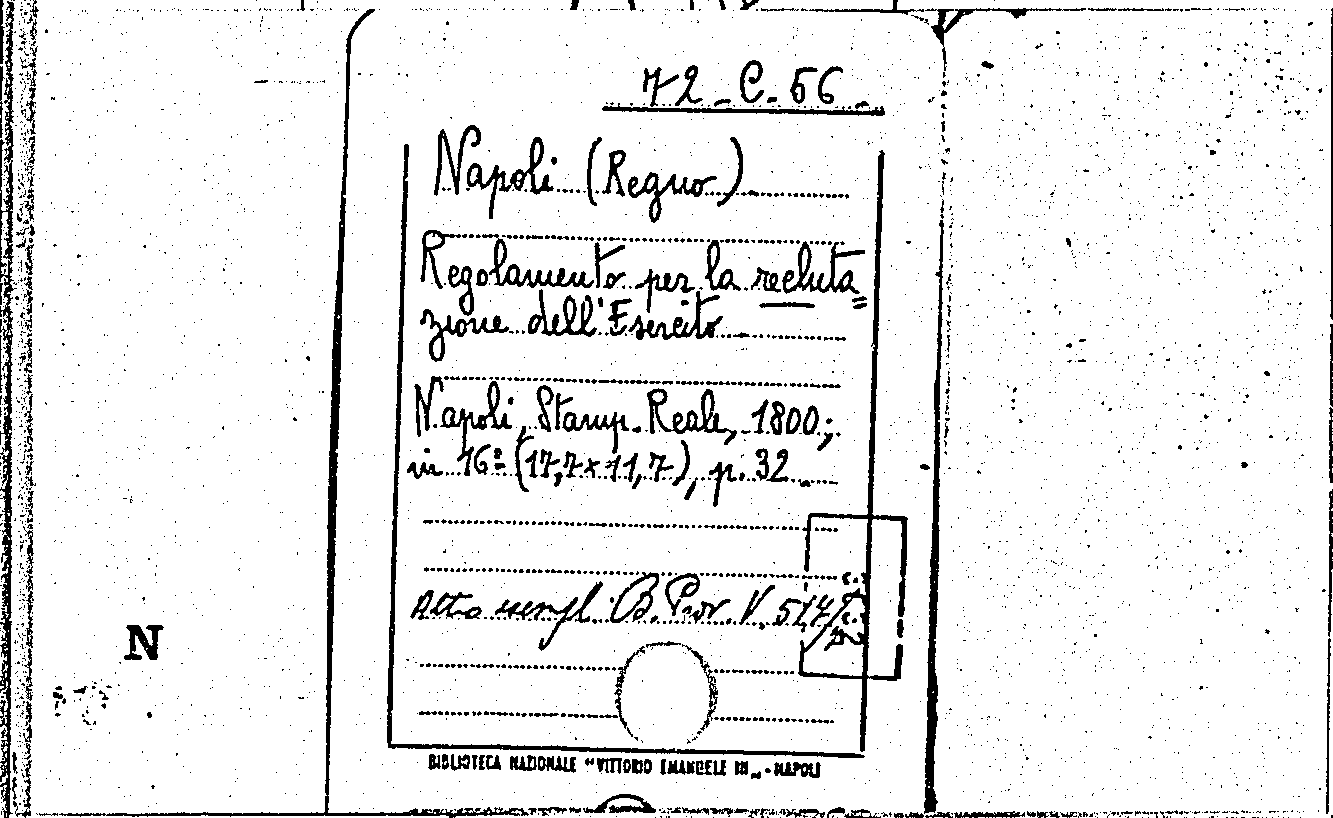 72-C.56.
Napoli (Regno).
Regolamento per la recluta=
zione dell'Esercito.
Napoli, Stamp. Reale, 1800;
in 16º (17,7x11,7), p. 32.
Altro esempl. B. Prov. V. 517/
N
BIBLIOTECA NAZIONALE "VITTORIO EMANUELE III„ - NAPOLI